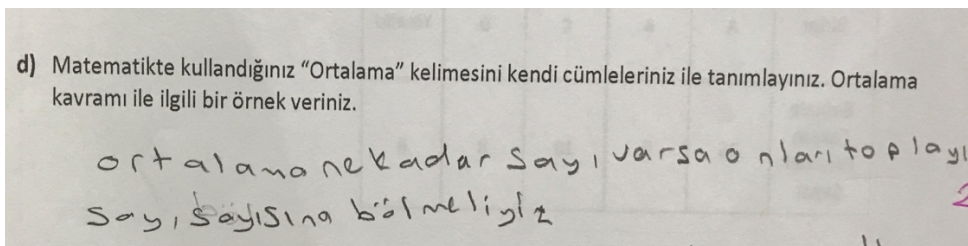 d) Matematikte kullandığınız “Ortalama” kelimesini kendi cümleleriniz ile tanımlayınız. Ortalama
kavramı ile ilgili bir örnek veriniz.
ortalama ne kadar sayı varsa onları toplayı
sayı sayısına bölmeliyiz
2